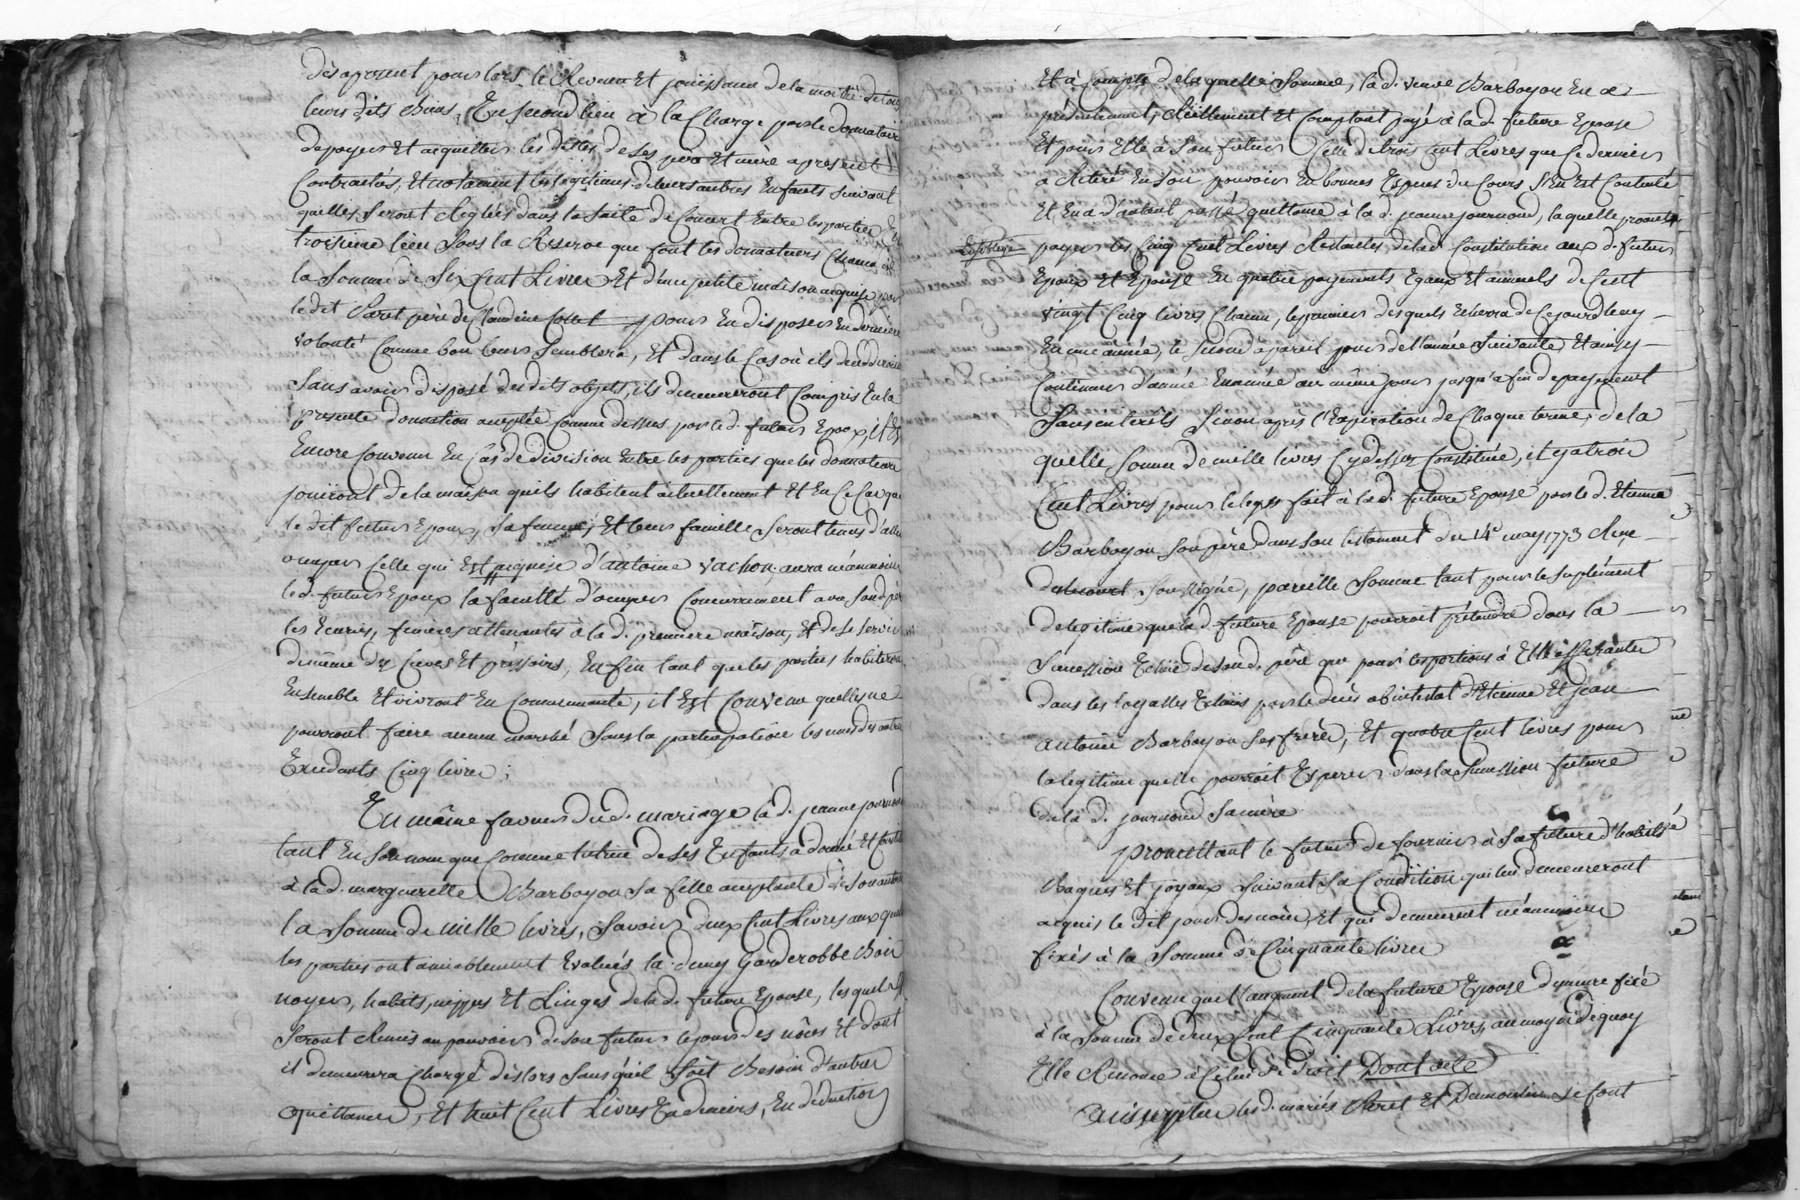 dès aprésent pour lors, le Revenu Et jouissance de la moitié de tous
leurs dits Biens, En second lieu à la Charge par le donnataire
de payer Et acquitter les dettes de ses père Et mère aprésent
Contractés, Et notament les légitimes de leurs autres Enfants suivant
quelles seront Réglées dans la suite de Concert Entre les parties En
troisieme lieu sous la Réserve que font les donnateurs Chacun de
la somme de Six Cent Livres Et d'une petite maison acquise par
le dit Paret père de Claudine Collet pour En disposer En derniere
volonté Comme bon leurs semblera, Et dans le Cas où ils
sans avoir disposé des dits objets, ils demeureront Compris En la
presente donnation acceptée Comme dessus par le d. futur Epoux, il Est
Encore Convenu En Cas de division Entre les parties que les donnateurs
jouiront de la maison quils habitent actuellement Et En Ce Cas que
le dit futur Epoux, sa femme, Et leur famille seront tenus d'aller
occuper Celle qui Est acquise d'antoine vachon aura néanmoins
led. futur Epoux la faculté d'occuper Concurrement avec son d. père
les Ecuries, fenières attenantes à la d. première maison, Et de se servir
de même des Caves Et pressoirs, En fin tant que les parties habiteront
Ensemble Et vivront En Communauté, il Est Convenu quelles ne
pourront faire aucun marché sans la participation les uns des autres
Excedants Cinq livres;
En même faveur du d. mariage la d. jeanne journoud
tant En son nom que Comme tutrice de ses Enfants a donné Et Constitué
à la d. marguerette Barboyon sa fille acceptante de son autorité
la somme de mille livres, savoir deux Cent Livres aux quelles
les parties ont amiablement Evalués la demy Garderobbe Bois
noyer, habits, nippes Et Linges de la d. future Epouse, lesquels
seront Remis au pouvoir de son futur le jour des nôces Et dont
il demeurera Chargé dès lors sans quil soit Besoin d'autre
quittance, Et huit Cent Livres En deniers, En déduction
Et à Compte de laquelle somme, la d. veuve Barboyon En a
présentement, Réellement Et Comptant payé à la d. future Epouse
Et pour Elle à son futur Celle de trois Cent Livres que Ce dernier
a Retiré En son pouvoir En bonnes Especes du Cours s'En Est Contenté
Et En a d'autant passé quittance à la d. jeanne journoud, laquelle promet
payer les Cinq Cent Livres Restantes de lad. Constitution aux d. futurs
Epoux Et Epouse En quatre payements Egaux Et annuels de Cent
vingt Cinq livres Chacun, le premier des quels Echerra de Ce jourdhuy
En une année, le second à pareil jour de l'année suivante Et ainsy
Continuer d'année En année au même jour jusqu'a fin de payement
sans interêts sinon après l'Expiration de Chaque terme, de la
quelle somme de mille livres Cy dessus Constituée, il y a trois
Cent Livres pour le legs fait à la d. future Epouse par le d. Etienne
Barboyon son père dans son testament du 14e may 1773 Reçu
soussigné, pareille somme tant pour le suplément
de legitime que la d. future Epouse pourroit prétendre dans la
succession Echue de son d. père que pour les portions à Elle afferantes
dans les loyalles Echues par le décès abintestat d'Etienne Et jean
antoine Barboyon ses freres, Et quatre Cent livres pour
la legitime quelle pourroit Esperer dans la succession future
de la d. journoud sa mère
promettant le futur de fournir à sa future d'habits
Bagues Et joyaux suivant sa Condition qui lui demeureront
acquis le dit jour des nôces, Et qui demeurent néanmoins
fixés à la somme de Cinquante livres
Convenu que l'augment de la future Epouse demeure fixé
à la somme de deux Cent Cinquante Livres, au moyen de quoy
Elle Renonce à Celui de droit Dont acte
aussy plus les d. mariés Paret Et Dumoulin se font